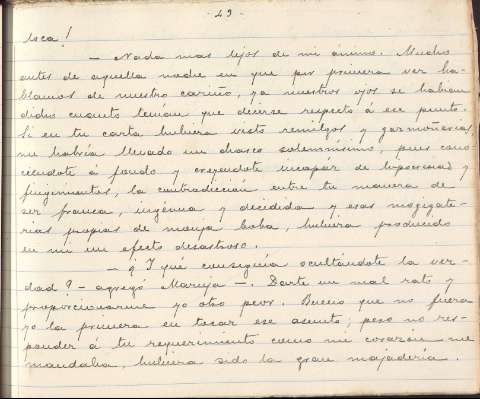 - 43 -
loca!
— Nada mas lejos de mi ánimo. Mucho
antes de aquella noche en que por primera vez ha-
blamos de nuestro cariño, ya nuestros ojos se habían
dicho cuanto tenían que decirse respecto á ese punto.
Si en tu carta hubiera visto remilgos y gazmoñerias
me habría llevado un chasco solemnísimo, pues cono-
ciéndote á fondo y creyéndote incapáz de hipocresias y
fingimientos, la contradicción entre tu manera de
ser franca, ingénua y decidida y esas mogigate-
rías propias de monja boba, hubiera producido
en mi un efecto desastroso.
— ¿Y qué conseguía ocultándote la ver-
dad? — agregó Maruja —. Darte un mal rato y
proporcionarme yo otro peor. Bueno que no fuera
yo la primera en tocar ese asunto, pero no res-
ponder á tu requerimiento como mi corazón me
mandaba, hubiera sido la gran majadería.